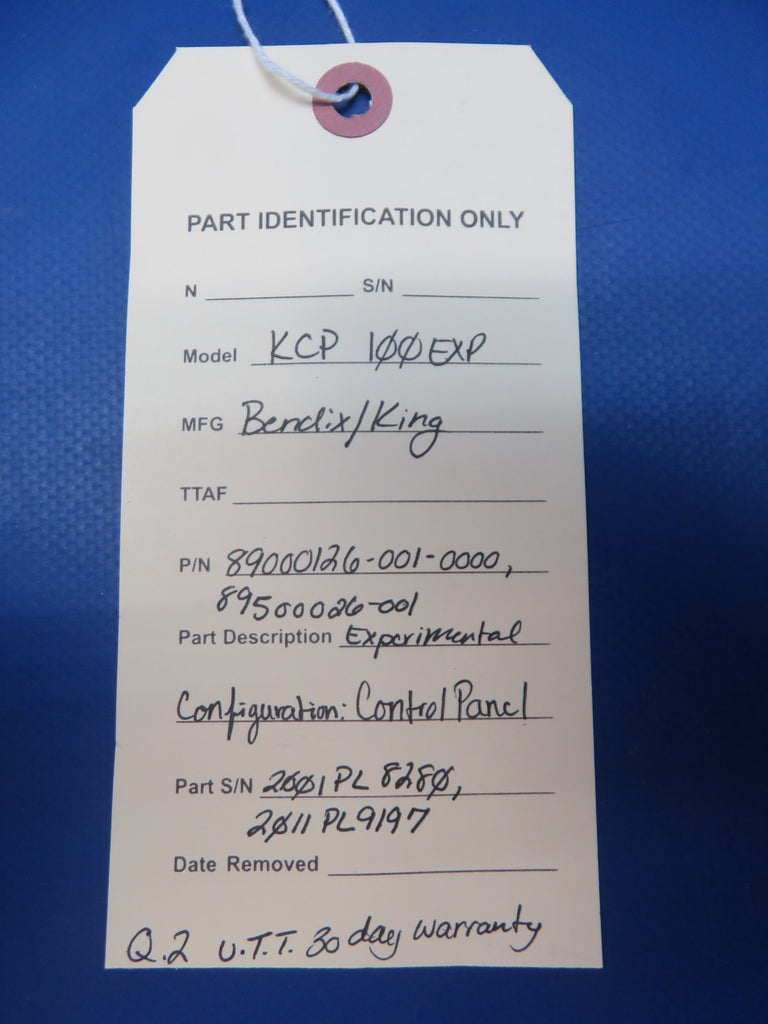 PART IDENTIFICATION ONLY
N ____________ S/N ____________
Model KCP 1ØØ EXP
MFG Bendix/King
TTAF ____________
P/N 89000126-001-0000,
89500026-001
Part Description Experimental
Configuration: Control Panel
Part S/N 2ØØ1 PL 828Ø,
2Ø11 PL9197
Date Removed ____________
Q.2 U.T.T. 30 day warranty